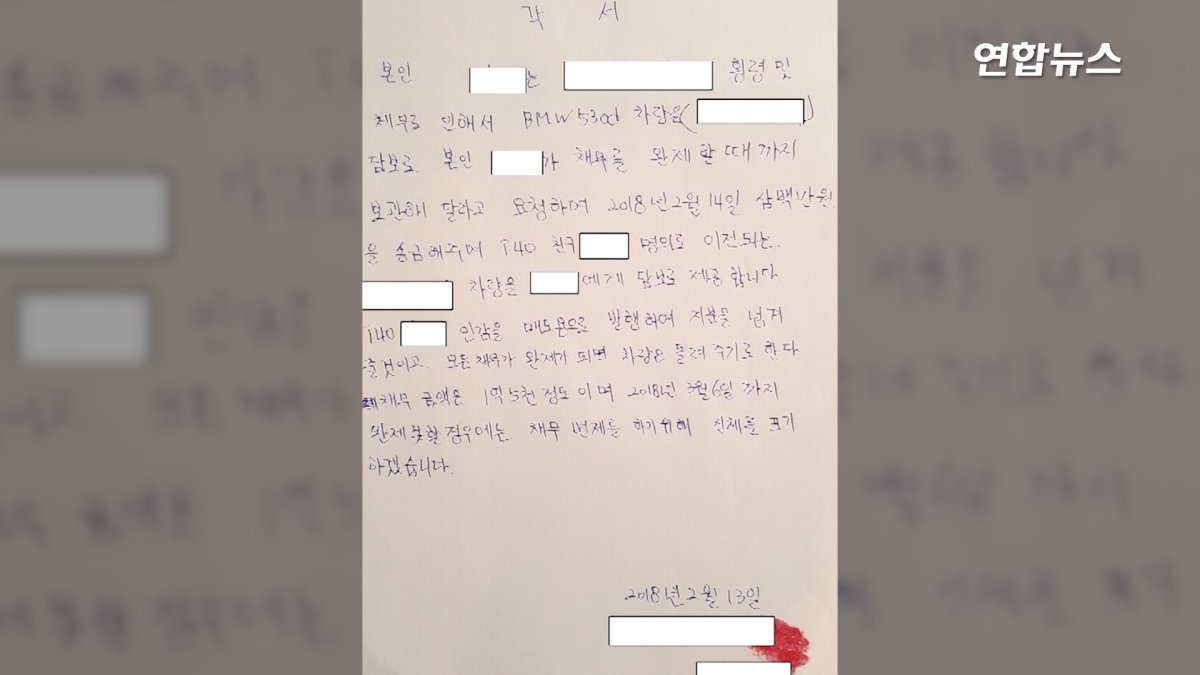 각 서
연합뉴스
본인 는 횡령 및
채무로 인해서 BMW 530d 차량을( )
담보로 본인 가 채무를 완제할때까지
보관해 달라고 요청하며 2018년2월14일 삼백만원
을 송금해주며 i40 친구 명의로 이전되는.
차량을 에게 담보로 제공합니다
i40 인감을 매도용으로 발행하여 지분을 넘겨
줄것이고. 모든채무가 완제가 되면 차량은 돌려주기로 한다
채무 금액은 1억5천정도 이며 2018년 3월6일 까지
완제못할경우에는 채무 변제를 하기위해 신체를 포기
하겠습니다.
2018년 2월 13일